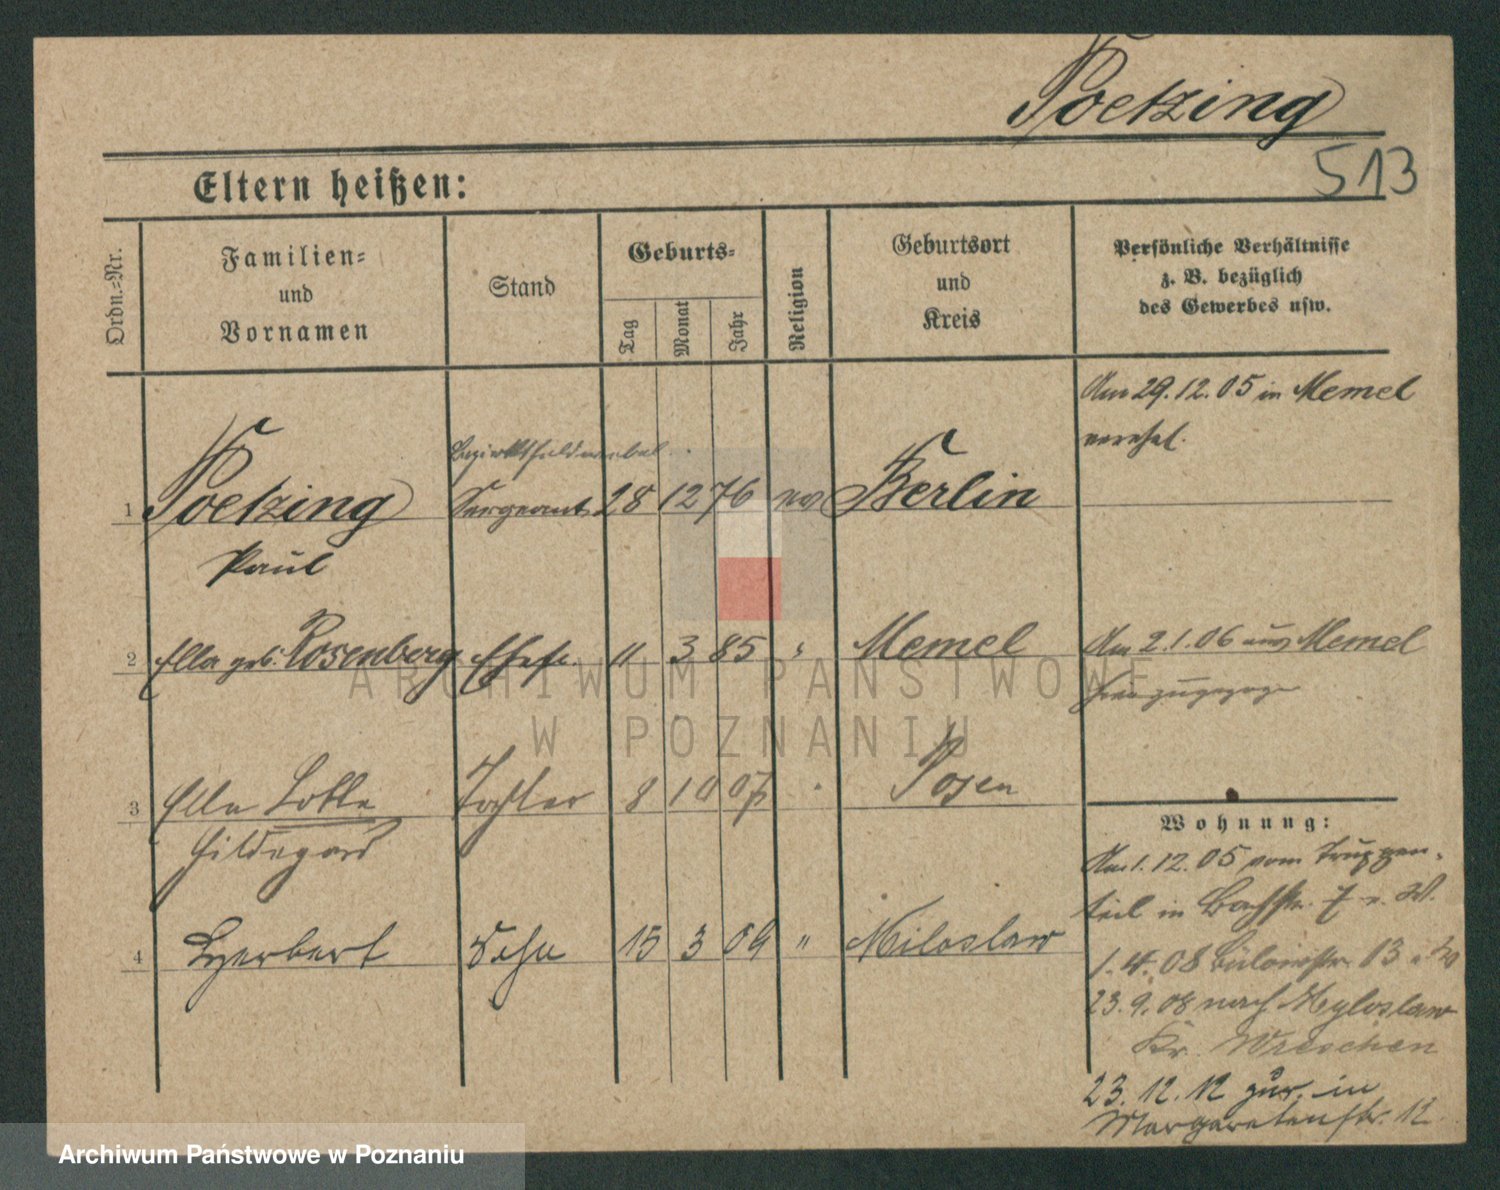 Poetzing
513
Eltern heißen:
Ordn.-Nr.
Familien-
und
Vornamen
Stand
Geburts-
Tag
Monat
Jahr
Religion
Geburtsort
und
Kreis
Persönliche Verhältnisse
z. B. bezüglich
des Gewerbes usw.
Am 29.12.05 in Memel
verehel.
Bezirksfeldwebel
1 Poetzing Sergeant 28 12 76 ev Berlin
Paul
2 Ella geb. Rosenberg Ehefr. 11 3 85 " Memel
Am 2.1.06 aus Memel
herzugezogen
3 Ella Lotte Tochter 8 10 07 " Posen
Hildegard
4 Herbert Sohn 15 3 09 " Miloslaw
Wohnung:
Am 1.12.05 vom Truppen-
teil in Bachstr. 7 v. W.
1.4.08 Bülowstr. 13
23.9.08 nach Myloslaw
Kr. Wreschen
23.12.12 zur. in
Margaretenstr. 12
ARCHIWUM PAŃSTWOWE
W POZNANIU
Archiwum Państwowe w Poznaniu